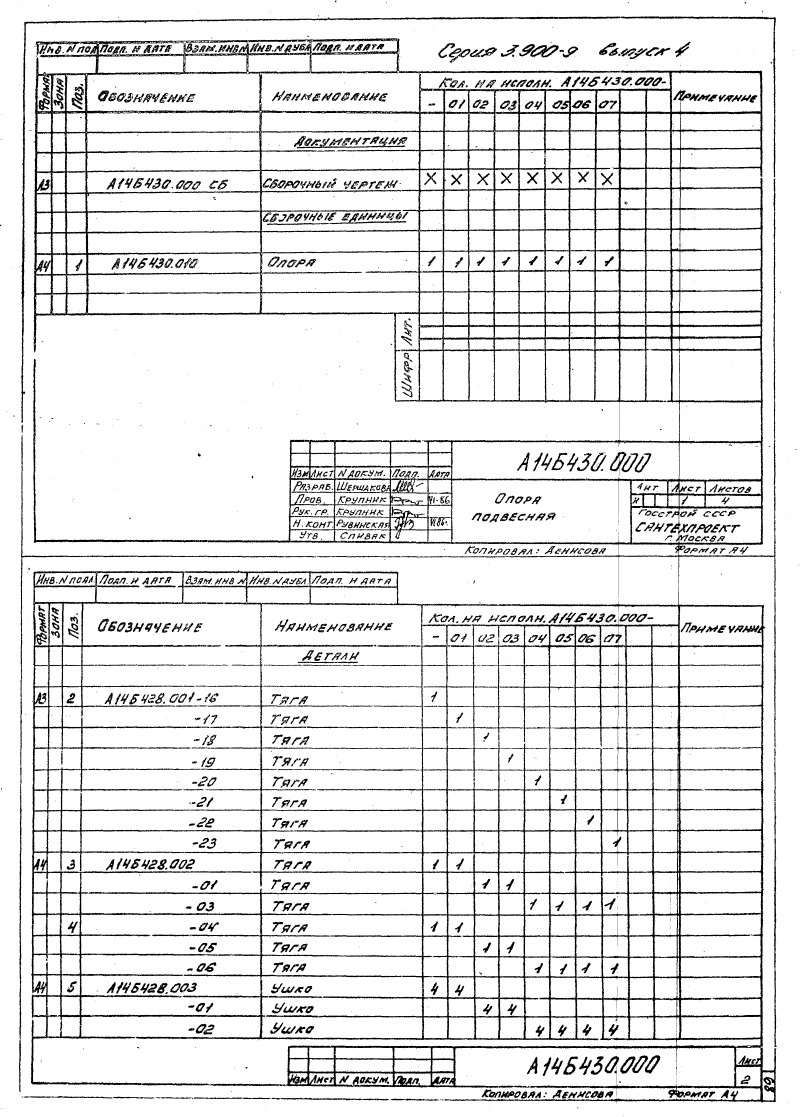 Инв. N подл Подп. и дата Взам. инв N Инв. N дубл Подп. и дата
Серия 3.900-9 выпуск 4
Формат Зона Поз. Обозначение Наименование Кол. на исполн. А14Б430.000- Примечание
- 01 02 03 04 05 06 07
Документация
А3 А14Б430.000 СБ Сборочный чертеж X X X X X X X X
Сборочные единицы
А4 1 А14Б430.010 Опора 1 1 1 1 1 1 1 1
Лит.
Шифр
А14Б430.000
Изм Лист N докум. Подп. Дата
Разраб. Шершакова
Пров. Крупник VI-86
Рук. гр. Крупник
Н. конт Рувинская VI.86г.
Утв. Спивак
Опора подвесная
Лит Лист Листов
И 1 4
Госстрой СССР
Сантехпроект
г. Москва
Копировал: Денисова Формат А4
Инв. N подл Подп. и дата Взам. инв N Инв. N дубл Подп. и дата
Формат Зона Поз. Обозначение Наименование Кол. на исполн. А14Б430.000- Примечание
- 01 02 03 04 05 06 07
Детали
А3 2 А14Б428.001-16 Тяга 1
-17 Тяга 1
-18 Тяга 1
-19 Тяга 1
-20 Тяга 1
-21 Тяга 1
-22 Тяга 1
-23 Тяга 1
А4 3 А14Б428.002 Тяга 1 1
-01 Тяга 1 1
-03 Тяга 1 1 1 1
4 -04 Тяга 1 1
-05 Тяга 1 1
-06 Тяга 1 1 1 1
А4 5 А14Б428.003 Ушко 4 4
-01 Ушко 4 4
-02 Ушко 4 4 4 4
Изм Лист N докум. Подп. Дата
А14Б430.000
Лист
2
89
Копировал: Денисова Формат А4